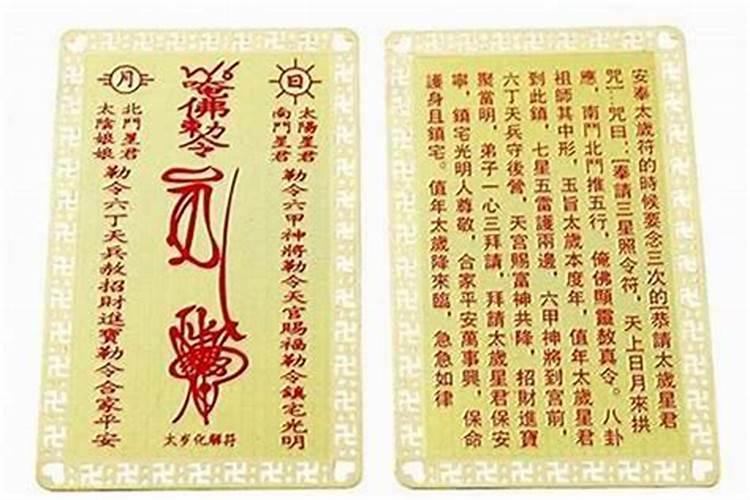 日
太陽星君
南門星君
勒令六甲神將勒令天官賜福勒令鎮宅光明
唵佛勅令
太岁化解符
月
北門星君
太陰娘娘
勒令六丁天兵赦招財進寶勒令合家平安
安奉太歲符的時候要念三次的[恭請太歲星君
咒]…咒曰:[奉請三星照令符,天上日月來拱
應,南門北門推五行,俺佛顯靈敖真令。八卦
祖師其中形,玉旨太歲本度年,值年太歲星君
到此鎮,七星五雷護兩邊,六甲神將到宮前,
六丁天兵守後營,天宮賜富神共降,招財進寶
聚當明,弟子一心三拜請,拜請太歲星君保安
寧,鎮宅光明人尊敬,合家平安萬事興,保命
護身且鎮宅。值年太歲降來臨,急急如律